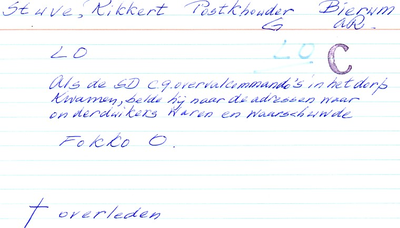 Stuve, Kikkert Postkhouder Bierum
G aR.
LO LO C
Als de SD C.q. overvalcommando's in het dorp
kwamen, belde hij naar de adressen waar
onderduikers waren en waarschuwde
Fokko O.
† overleden